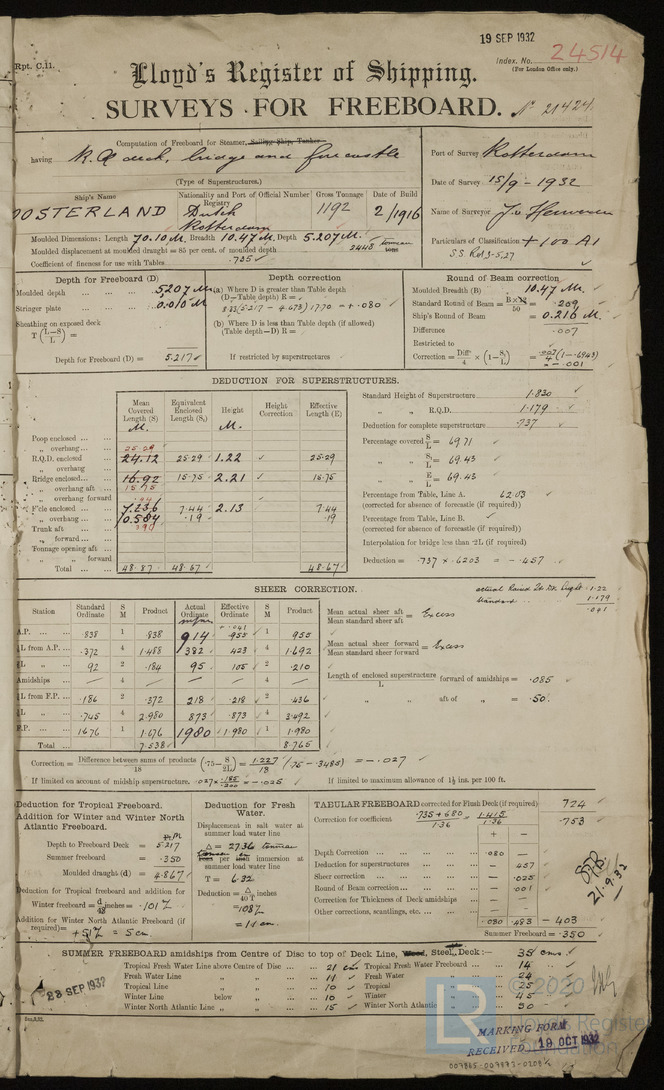 19 SEP 1932
Rpt. C.11.
Index. No. 24514
(For London Office only.)
Lloyd's Register of Shipping.
SURVEYS FOR FREEBOARD. No 21424
Computation of Freeboard for Steamer, Sailing Ship, Tanker
having R.Q. deck, bridge and forecastle
(Type of Superstructures.)
Port of Survey Rotterdam
Date of Survey 15/9-1932
Name of Surveyor
Particulars of Classification + 100 A1
S.S. Rot 3-5.27
Ship's Name Nationality and Port of Registry Official Number Gross Tonnage Date of Build
OOSTERLAND Dutch Rotterdam 1192 2/1916
Moulded Dimensions: Length 70.10 M. Breadth 10.47 M. Depth 5.207 M.
Moulded displacement at moulded draught = 85 per cent. of moulded depth 2448 tonnen tons
Coefficient of fineness for use with Tables .735
Depth for Freeboard (D)
Moulded depth 5.207 M
Stringer plate 0.010 M
Sheathing on exposed deck
T (L-S/L) =
Depth for Freeboard (D) = 5.217
Depth correction
(a) Where D is greater than Table depth
(D-Table depth) R =
8.33 (5.217 - 4.673) 1770 = + .080
(b) Where D is less than Table depth (if allowed)
(Table depth-D) R =
If restricted by superstructures
Round of Beam correction
Moulded Breadth (B) 10.47 M.
Standard Round of Beam = B×12/50 = .209
Ship's Round of Beam = 0.216 M.
Difference .007
Restricted to
Correction = Diff/4 × (1-S/L) = .007/4 (1-.6943)
= - .001
DEDUCTION FOR SUPERSTRUCTURES.
Mean Covered Length (S) Equivalent Enclosed Length (S1) Height Height Correction Effective Length (E)
M. M.
Poop enclosed
„ overhang 25.29
R.Q.D. enclosed 24.12 25.29 1.22 25.29
„ overhang
Bridge enclosed 16.92 15.75 2.21 15.75
„ overhang aft 15.75
„ overhang forward .44
F'cle enclosed 7.236 7.44 2.13 7.44
„ overhang 0.584 .19 .19
Trunk aft .390
„ forward
Tonnage opening aft
„ „ forward
Total 48.87 48.67 48.67
Standard Height of Superstructure 1.830
„ „ R.Q.D. 1.179
Deduction for complete superstructure .737
Percentage covered S/L = 69.71
„ „ S1/L = 69.43
„ „ E/L = 69.43
Percentage from Table, Line A. 62.03
(corrected for absence of forecastle (if required))
Percentage from Table, Line B.
(corrected for absence of forecastle (if required))
Interpolation for bridge less than ·2L (if required)
Deduction = .737 × .6203 = - .457
SHEER CORRECTION.
Station Standard Ordinate S M Product Actual Ordinate Effective Ordinate S M Product
+ .041
A.P. .838 1 .838 914 .955 1 955
¼L from A.P. .372 4 1.488 382 423 4 1.692
½L „ 92 2 .184 95 105 2 .210
Amidships — 4 — — — 4 —
½L from F.P. .186 2 .372 218 .218 2 .436
¼L „ .745 4 2.980 873 .873 4 3.492
F.P. 1676 1 1.676 1980 1.980 1 1.980
Total 7.538 8.765
actual Raised Qr Dk. height 1.22
standard 1.179
.041
Mean actual sheer aft
Mean standard sheer aft = Excess
Mean actual sheer forward
Mean standard sheer forward = Excess
Length of enclosed superstructure/L forward of amidships = .085
„ „ aft of „ = .50.
Correction = Difference between sums of products/18 (·75 - S/2L) = 1.227/18 (.75 - .3485) = - .027
If limited on account of midship superstructure. .027 × .185/.200 = - .025
If limited to maximum allowance of 1½ ins. per 100 ft.
Deduction for Tropical Freeboard.
Addition for Winter and Winter North Atlantic Freeboard.
M
Depth to Freeboard Deck = 5.217
Summer freeboard = .350
Moulded draught (d) = 4.867
Deduction for Tropical freeboard and addition for
Winter freeboard = d/48 inches = .1017
Addition for Winter North Atlantic Freeboard (if
required) = + 5 cm
Deduction for Fresh Water.
Displacement in salt water at
summer load water line
Δ = 2736 tonnen
Tons per inch immersion at
summer load water line
T = 6.32
Deduction = Δ/40T inches
= .1082
= 11 cm
TABULAR FREEBOARD corrected for Flush Deck (if required) 724
Correction for coefficient .735+.680/1.36 = 1.415/1.36 .753
+ -
Depth Correction .080
Deduction for superstructures — .457
Sheer correction — .025
Round of Beam correction — .001
Correction for Thickness of Deck amidships —
Other corrections, scantlings, etc. —
.080 .483 - 403
Summer Freeboard = .350
21.9.32
SUMMER FREEBOARD amidships from Centre of Disc to top of Deck Line, Wood, Steel, Deck:— 35 cms
Tropical Fresh Water Line above Centre of Disc 21 cm Tropical Fresh Water Freeboard 14
Fresh Water Line „ „ 11 Fresh Water „ 24
Tropical Line „ „ 10 Tropical „ 25
Winter Line below „ „ 10 Winter „ 45
Winter North Atlantic Line „ „ 15 Winter North Atlantic „ 50
23 SEP 1932
MARKING FORM
RECEIVED 19 OCT 1932
© 2020
Lloyd's Register
Foundation
LR
007865-007873-0208½